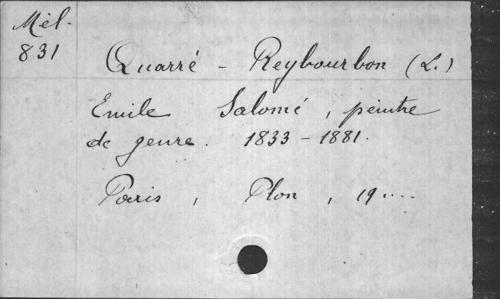 Mél.
831
Quarré - Reybourbon (L.)
Emile Salomé, peintre
de genre. 1833 - 1881.
Paris, Plon, 19....